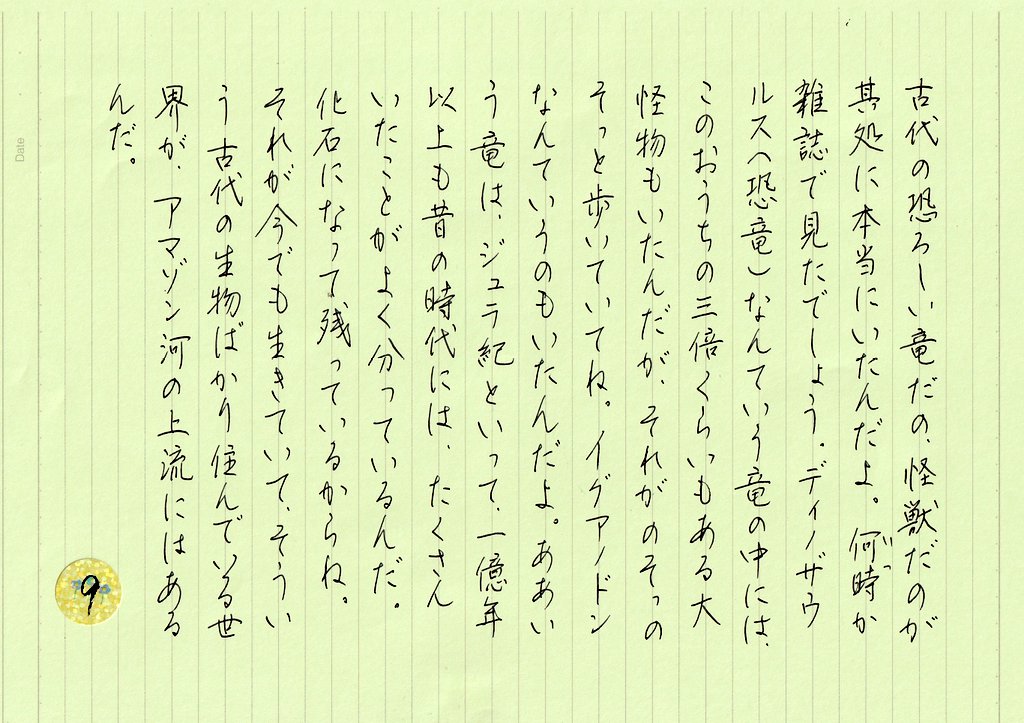 古代の恐ろしい竜だの、怪獣だのが
其処に本当にいたんだよ。何時か
いつ
雑誌で見たでしょう。ディノザウ
ルス（恐竜）なんていう竜の中には、
このおうちの三倍くらいもある大
怪物もいたんだが、それがのそっの
そっと歩いていてね。イグアノドン
なんていうのもいたんだよ。ああい
う竜は、ジュラ紀といって、一億年
以上も昔の時代には、たくさん
いたことがよく分っているんだ。
化石になって残っているからね。
それが今でも生きていて、そうい
う古代の生物ばかり住んでいる世
界が、アマゾン河の上流にはある
んだ。
9
Date